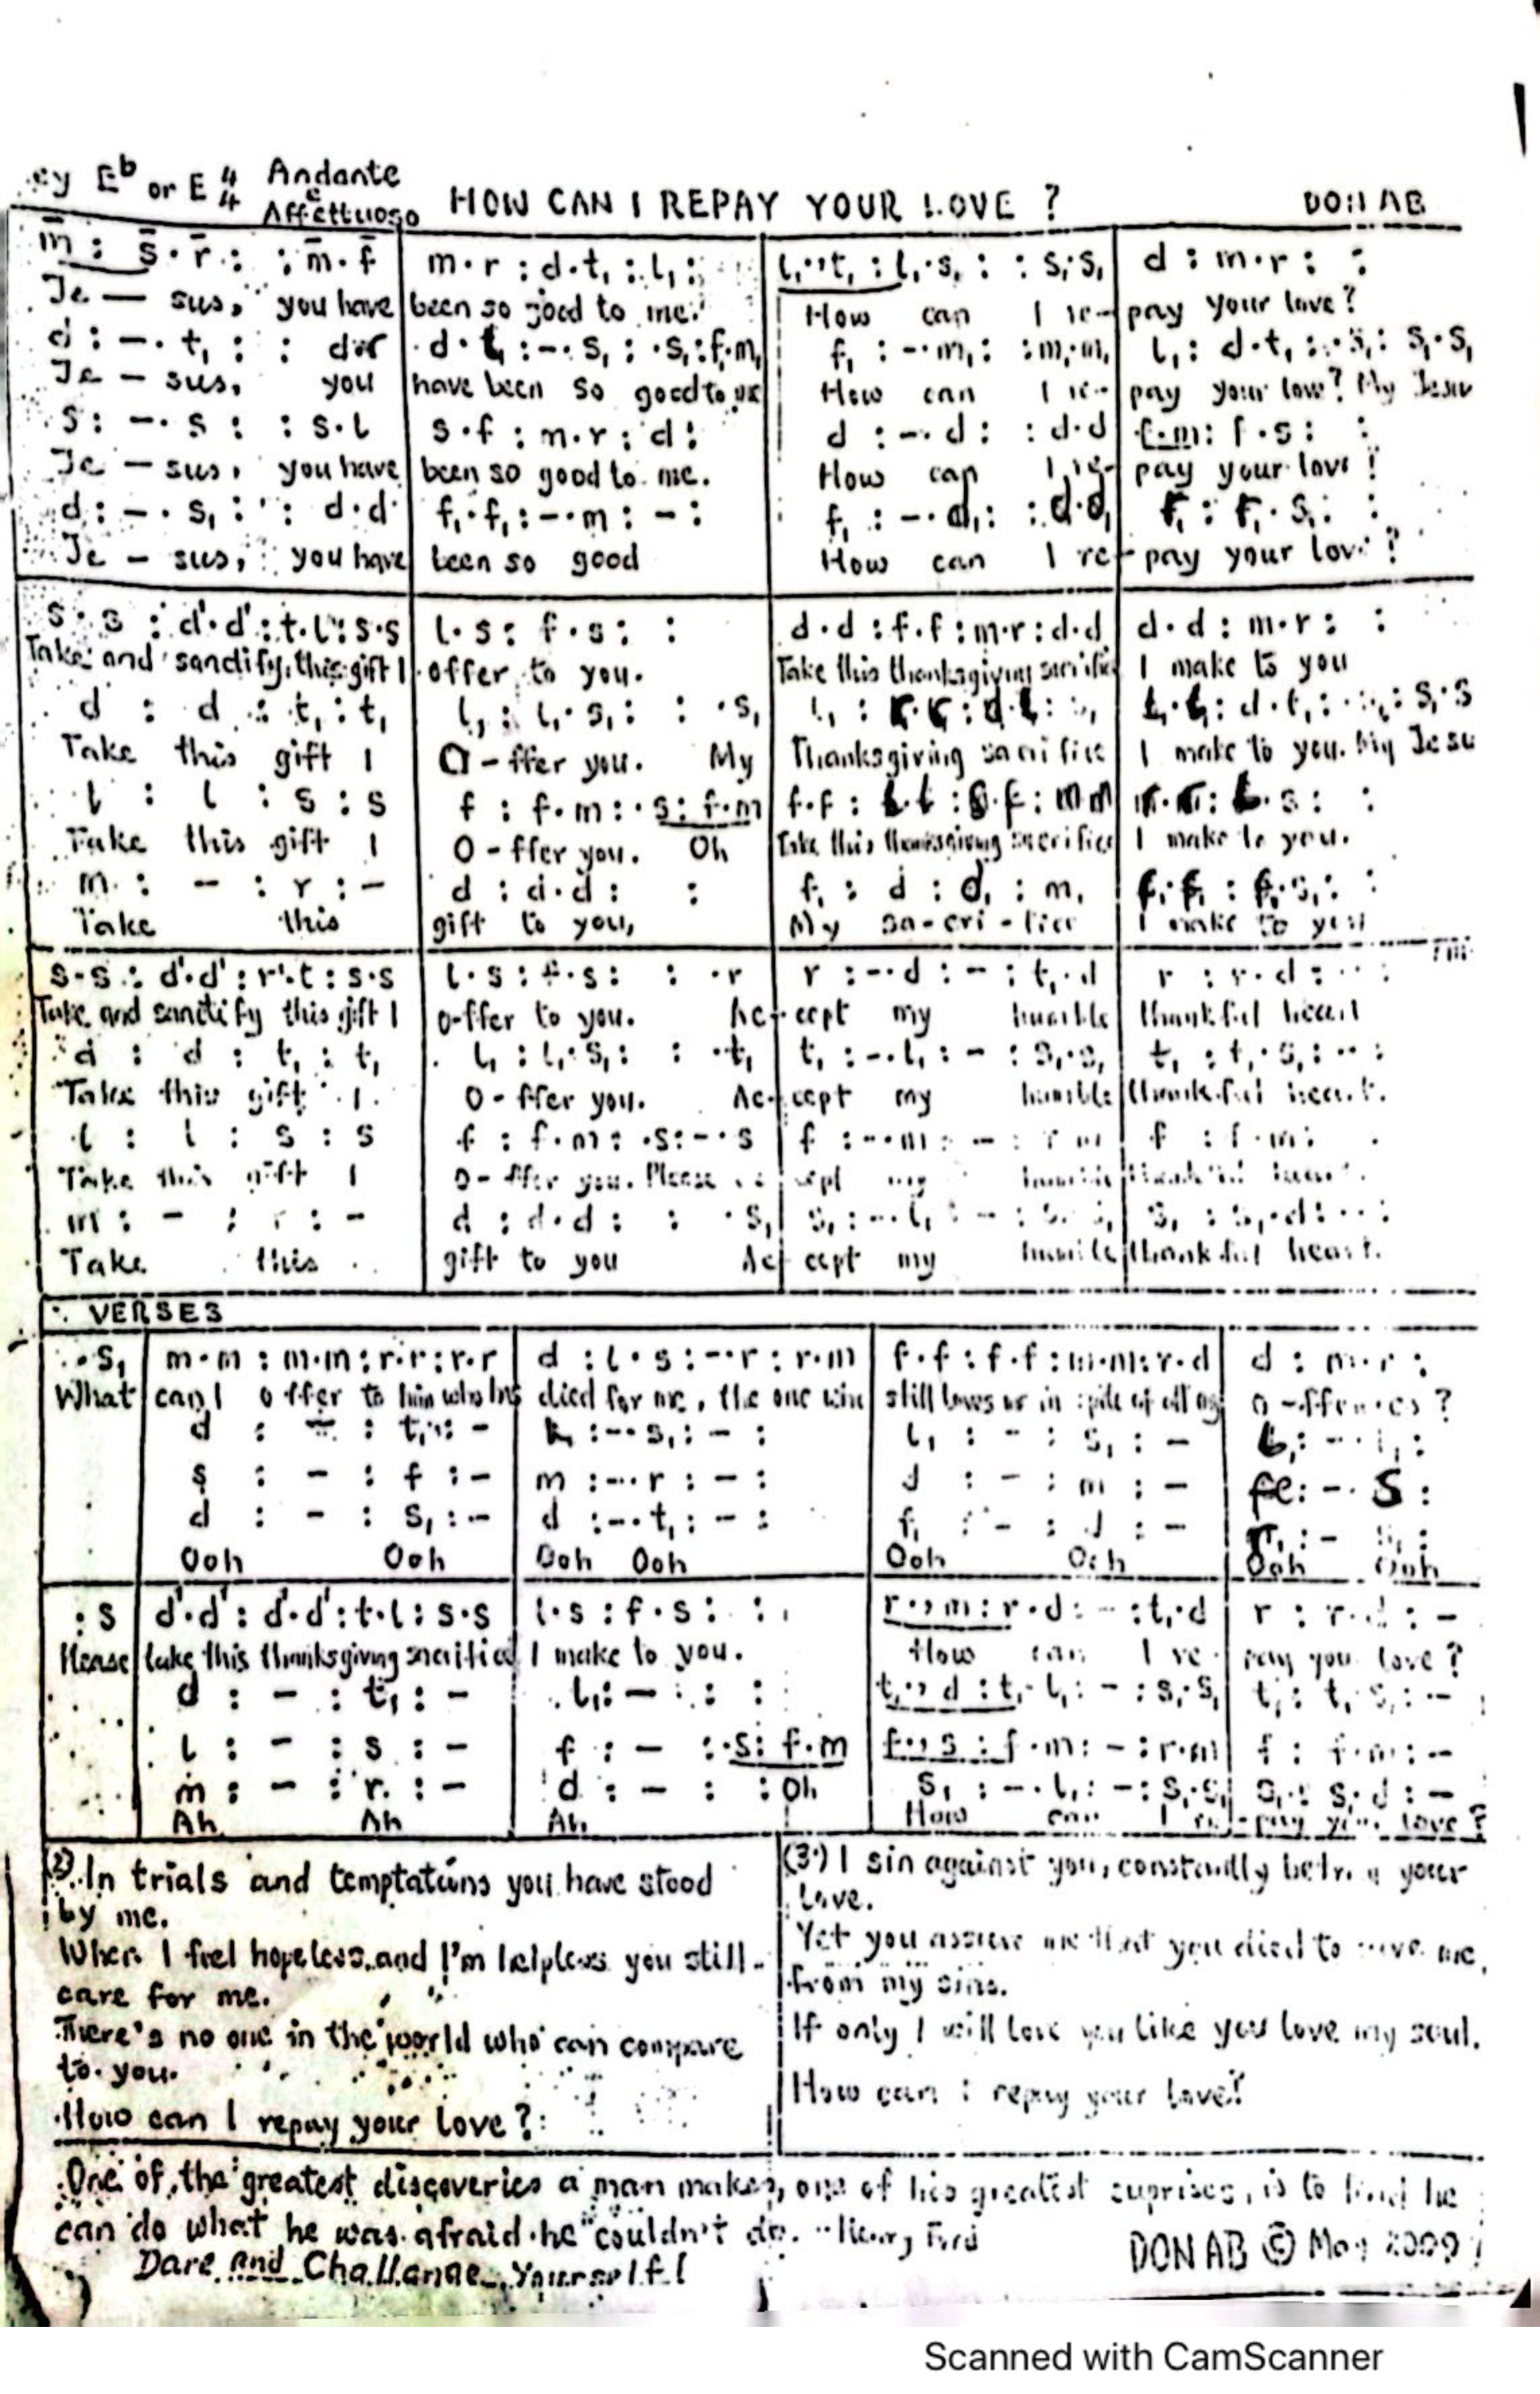 ey Eb or E 4/4 Andante e Affettuoso HOW CAN I REPAY YOUR LOVE ? DONAB
m : s . r : : m . f | m . r : d . t, : l, : | l, ., t, : l, . s, : : s, . s, | d : m . r : :
Je — sus, you have | been so good to me. | How can I re- | pay your love?
d : – . t, : : d . r | . d . t, : – . s, : . s, : f, . m, | f, : – . m, : : m, . m, | l, : d . t, : . s, : s, . s,
Je – sus, you | have been so good to us | How can I re- | pay your love? My Jesu
s : – . s : : s . l | s . f : m . r : d : | d : – . d : : d . d | f . m : f . s : :
Je – sus, you have | been so good to me. | How can I re- | pay your love !
d : – . s, : : d . d | f, . f, : – . m : – : | f, : – . d, : : d, . d, | f, : f, . s, : :
Je – sus, you have | been so good | How can I re | pay your love ?
s . s : d' . d' : t . l : s . s | l . s : f . s : : | d . d : f . f : m . r : d . d | d . d : m . r : :
Take and sanctify, this gift I | offer to you. | Take this thanksgiving sacrifice | I make to you
d : d : t, : t, | l, : l, . s, : : . s, | l, : r . r : d . t, : s, | t, . t, : d . t, : . s, : s, . s
Take this gift I | O – ffer you. My | Thanksgiving sacrifice | I make to you. My Jesu
l : l : s : s | f : f . m : . s : f . m | f . f : l . l : s . f : m m
Take this gift I | O – ffer you. Oh | Take this thanksgiving sacrifice | I make to you.
m : – : r : – | d : d . d : : | f, : d : d, : m, | f, . f, : f, . s, : :
Take this | gift to you, | My sa-cri-fice | I make to you
s . s : d' . d' : r' . t : s . s | l . s : f . s : : . r | r : – . d : – : t, . d | r : r . d : – :
Take and sanctify this gift I | o-ffer to you. Ac- | cept my humble | thankful heart
d : d : t, : t, | l, : l, . s, : : . t, | t, : – . l, : – : s, . s, | t, : t, . s, : – :
Take this gift I | O – ffer you. Ac- | cept my humble | thankful heart.
l : l : s : s | f : f . m : . s : – . s | f : – . m : – : r m | f : f . m :
Take this gift I | O – ffer you. Please | cept my humble | thankful heart.
m : – : r : – | d : d . d : : . s, | s, : – . l, : – : s, . s, | s, : s, . d : – :
Take this | gift to you Ac | cept my humble | thankful heart.
VERSES
. s, | m . m : m . m : r . r : r . r | d : l . s : – . r : r . m | f . f : f . f : m . m : r . d | d : m . r :
What | can I offer to him who has | died for me, the one who | still loves us in spite of all my | o-ffences ?
d : – : t, : – | l, : – . s, : – : | l, : – : s, : –
s : – : f : – | m : – . r : – : | d : – : m : – | fe : – . s :
d : – : s, : – | d : – . t, : – : | f, : – : d : –
Ooh Ooh | Ooh Ooh | Ooh Ooh | Ooh Ooh
: s | d' . d' : d' . d' : t . l : s . s | l . s : f . s : : | r ., m : r . d : – : t, . d | r : r . d : –
Please | take this thanksgiving sacrifice | I make to you. | How can I re- | pay you love ?
d : – : t, : – | l, : – : : | t, ., d : t, . l, : – : s, . s, | t, : t, . s, : –
l : – : s : – | f : – : . s : f . m | f ., s : f . m : – : r . m | f : f . m : –
m : – : r : – | d : – : : Oh | s, : – . l, : – : s, . s, | s, : s, . d : –
Ah Ah | Ah | How can I re-pay your love ?
(2) In trials and temptations you have stood
by me.
When I feel hopeless and I'm helpless you still
care for me.
There's no one in the world who can compare
to you.
How can I repay your love ?
(3) I sin against you, constantly betray your
Love.
Yet you assure me that you died to save me,
from my sins.
If only I will love you like you love my soul.
How can I repay your love?
One of the greatest discoveries a man makes, one of his greatest suprises, is to find he
can do what he was afraid he couldn't do. - Henry Ford
Dare and Challange Yourself!
DONAB © May 2009
Scanned with CamScanner